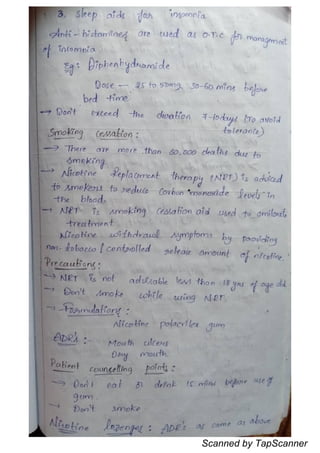 3. Sleep aids for insomnia
Anti-histamines are used as O.T.C for management
of insomnia
Eg: Diphenhydramide
Dose - 25 to 50mg, 30-60 mins before
bed time.
→ Don't exceed the duration 7-10days (to avoid
tolerance)
Smoking cessation:
→ There are more than 30,000 deaths due to
smoking.
→ Nicotine Replacment therapy (NRT) is adviced
to smokers to reduce Carbon monoxide levels in
the blood.
→ NRT is smoking cessation aid used to
treatment
Nicotine withdrawl symptoms by providing
non-tobacco / controlled release amount of nicotine.
Precautions:
→ NRT is not advisable less than 18 yrs of age old
→ Don't smoke while using NRT.
→ Formulations:
Nicotine polacrilex gum
ADR's:-
Mouth ulcers
Dry mouth
Patient councelling points:
→ Don't eat or drink 15 mins before use of
gum.
→ Don't smoke
Nicotine lozenges: ADR's as same as above
Scanned by TapScanner